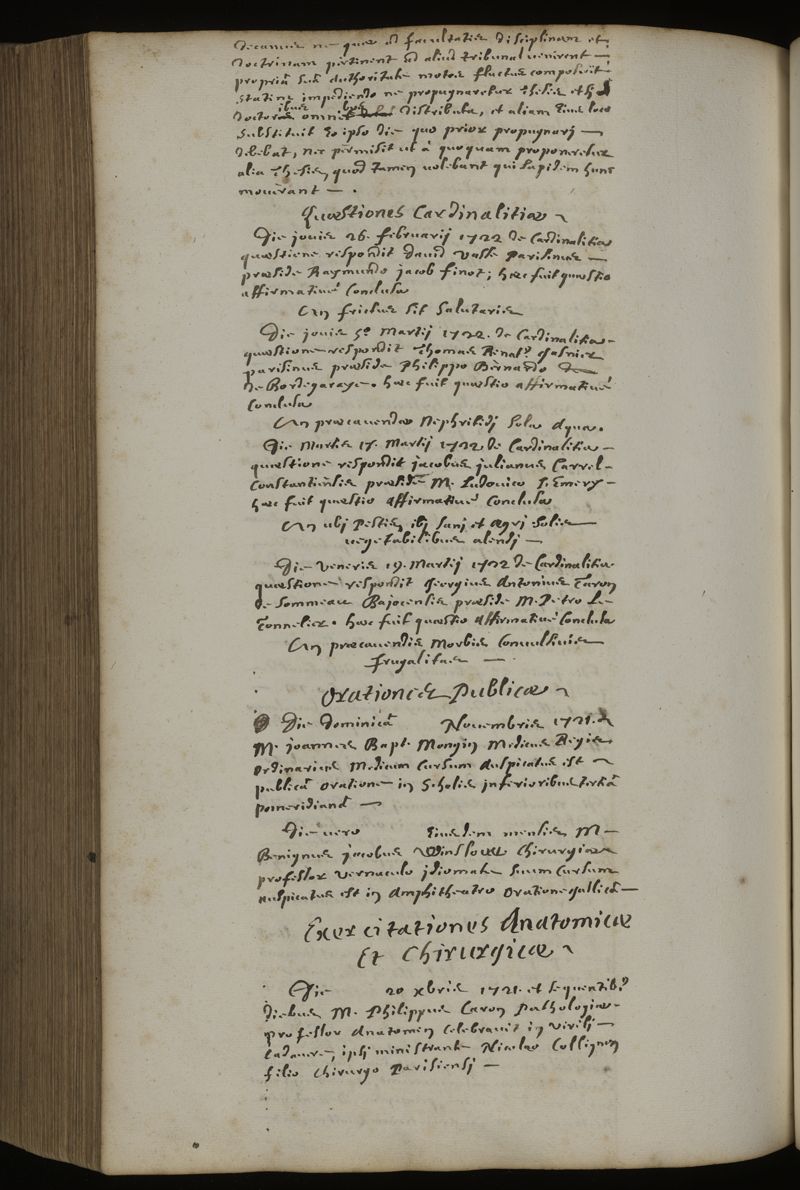 decanus ne quae ad facultatis disciplinam et
doctrinam pertinent ad aliud tribunal venirent —
propriâ suâ authoritate motos fluctus composuit
statim impediendo ne propugnaretur thesis
doctoribus omnibus distributa, et aliam eius loco
substituit eo ipso die quo prior propugnari —
debebat, nec permisit ut a quoquam proponeretur
alia thesis, quod tamen volebant qui lapidem hunc
moverant — .
Quæstiones Cardinalitiæ ~
Die jovis 26. februarij 1722 de Cardinalitia
quæstione respondit david Vasse Parisinus —
præside Raymundo jacob finot; hæc fuit quæstio
affirmativè Conclusa
An frictus sit salutaris
Die jovis 5º Martij 1722. de Cardinalitia -
quæstione respondit Thomas Renatº Gasnier
parisinus præside Philippo Bernardo
de Bordegaraye. hæc fuit quæstio affirmativè
Conclusa
An præcavendæ Nephritidj sola aqua.
Die Martis 17. Martij 1722 de Cardinalitia -
quæstione respondit jacobus julianus Carrel -
Constantiensis præside M. Ludovico l'Emery -
hæc fuit quæstio affirmativè Conclusa
An ubj Pestis, ibj sanj et ægrj solis —
vegetabilibus alendj —
Die Veneris 19. Martij 1722 de Cardinalitia
quæstione respondit Georgius Antonius Faron
de Sommeau Bajocensis præside M. Petro Le -
Tonnelier. hæc fuit quæstio affirmativè Conclusa
An præcavendis Morbis Convultivis
frugalitas —
Orationes Publicæ ~
Die dominicâ Novembris 1721.
M. joannes Bapt. Mongin Medicus Regis
ordinarius Medicum Cursum auspicatus est ~
publicâ oratione in scholis inferioribus tertiâ
pomeridianâ —
Die vero Eiusdem mensis, M -
Benignus jacobus Winslow Chirurgiæ
professor vernaculo jdiomate suum Cursum
auspicatus est in amphitheatro oratione gallicâ —
Exercitationes Anatomicæ
Et Chirurgicæ ~
Die 20 xbris 1721. et sequentibº
diebus M. Philippus Caron Pathologiæ -
professor anatomen celebravit in virilj —
cadavere, ipsj ministrante Nicolao Collignon
filio Chirurgo Parisiensj —